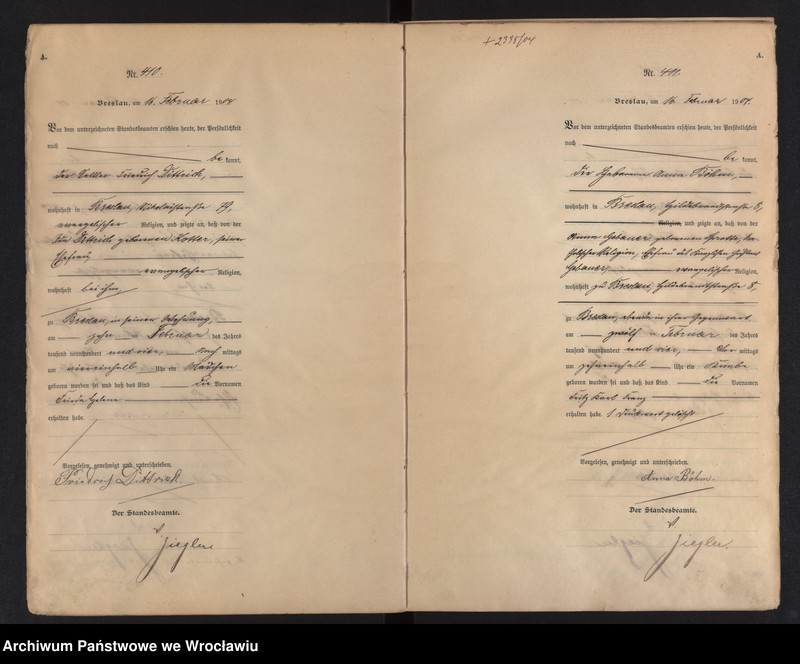 A.
Nr. 410.
Breslau, am 16. Februar 1904
Vor dem unterzeichneten Standesbeamten erschien heute, der Persönlichkeit
nach
be kannt,
der Friedrich Dittrich,
wohnhaft in Breslau, 79,
evangelischer Religion, und zeigte an, daß von der
Dittrich geborenen Kotter, seiner
Ehefrau
evangelischer Religion,
wohnhaft bei ihm
zu Breslau, in seiner Wohnung,
am zehn Februar des Jahres
tausend neunhundert und vier, Nach mittags
um ein halb Uhr ein Mädchen
geboren worden sei und daß das Kind die Vornamen
Frieda Helene
erhalten habe.
Vorgelesen, genehmigt und unterschrieben.
Friedrich Dittrich.
Der Standesbeamte.
V.
Ziegler
+2398/04
A.
Nr. 411.
Breslau, am 16. Februar 1904.
Vor dem unterzeichneten Standesbeamten erschien heute, der Persönlichkeit
nach
be kannt,
die Hebamme Anna Böhm,
wohnhaft in Breslau, Hildebrandstraße 8,
Religion, und zeigte an, daß von der
Anna Gebauer geborenen ka-
tholischer Religion, Ehefrau des
Gebauer, evangelischer Religion,
wohnhaft zu Breslau, Hildebrandtstraße 8,
zu Breslau, ebenda in ihrer Gegenwart
am zwölf Februar des Jahres
tausend neunhundert und vier, Vor mittags
um zehneinhalb Uhr ein Knabe
geboren worden sei und daß das Kind die Vornamen
Fritz Karl Franz
erhalten habe. 1 Druckwort gelöscht
Vorgelesen, genehmigt und unterschrieben.
Anna Böhm.
Der Standesbeamte.
V.
Ziegler.
Archiwum Państwowe we Wrocławiu